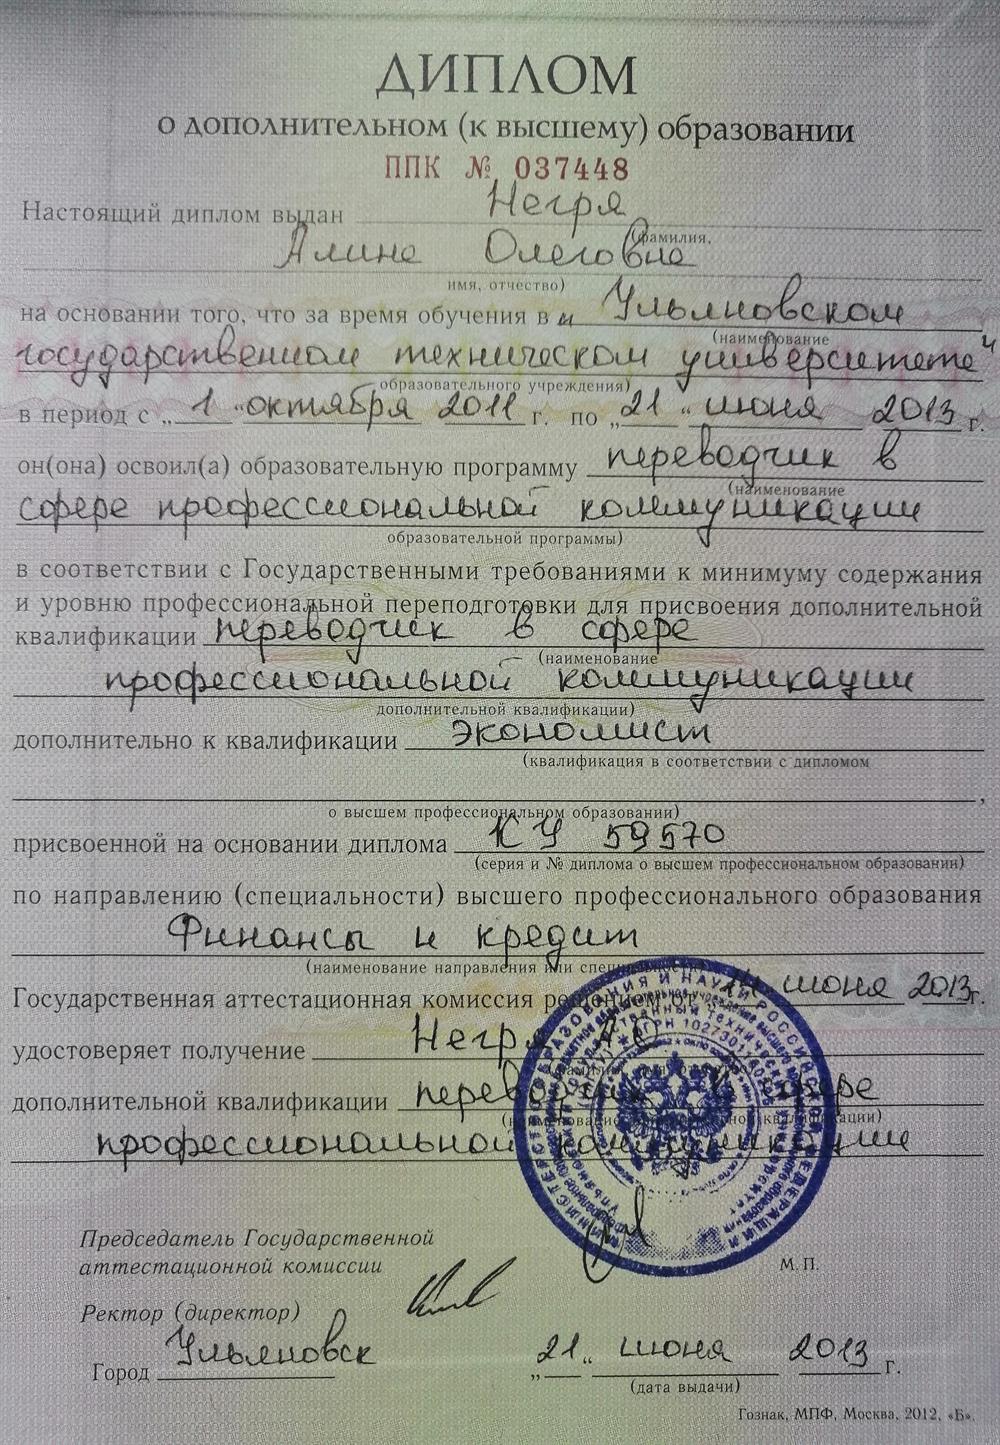 ДИПЛОМ
о дополнительном (к высшему) образовании
ППК № 037448
Настоящий диплом выдан Негря
(фамилия,
Алине Олеговне
имя, отчество)
на основании того, что за время обучения в „Ульяновском
(наименование
государственном техническом университете“
образовательного учреждения)
в период с „1“ октября 2011 г. по „21“ июня 2013 г.
он(она) освоил(а) образовательную программу переводчик в
(наименование
сфере профессиональной коммуникации
образовательной программы)
в соответствии с Государственными требованиями к минимуму содержания
и уровню профессиональной переподготовки для присвоения дополнительной
квалификации переводчик в сфере
(наименование
профессиональной коммуникации
дополнительной квалификации)
дополнительно к квалификации экономист
(квалификация в соответствии с дипломом
,
о высшем профессиональном образовании)
присвоенной на основании диплома КУ 59570
(серия и № диплома о высшем профессиональном образовании)
по направлению (специальности) высшего профессионального образования
Финансы и кредит
(наименование направления или специальности)
Государственная аттестационная комиссия решением от июня 2013г.
удостоверяет получение Негря
дополнительной квалификации переводчик в сфере
профессиональной коммуникации
Председатель Государственной
аттестационной комиссии
М. П.
Ректор (директор)
Город Ульяновск „21“ июня 2013 г.
(дата выдачи)
Гознак, МПФ, Москва, 2012, «Б».